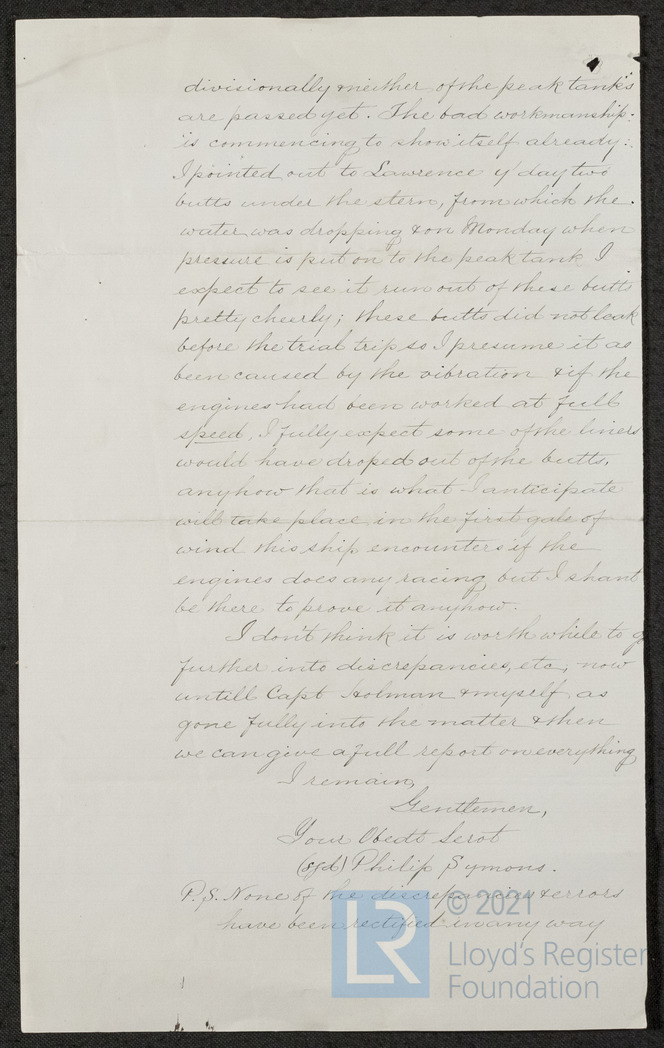 divisionally & neither of the peak tank's
are passed yet. The bad workmanship.
is commencing to show itself already:
I pointed out to Lawrence y'day two
butts under the stern, from which the.
water was dropping & on Monday when
pressure is put on to the peak tank I
expect to see it run out of these butt
pretty cheerly; these butts did not leak
before the trial trip so I presume it as
been caused by the vibration & if the
engines had been worked at full
speed, I fully expect some of the liners
would have droped out of the butts,
anyhow that is what I anticipate
will take place in the first gale of
wind this ship encounters if the
engines does any racing but I shant
be there to prove it anyhow.
I don't think it is worth while to g
further into discrepancies, etc, now
untill Capt Holman & myself as
gone fully into the matter & then
we can give a full report on everything
I remain,
Gentlemen,
Your Obedt Servt
(sgd) Philip Symons.
P.S. None of the discrepancies & errors
have been rectified in any way
LR © 2021
Lloyd's Register
Foundation